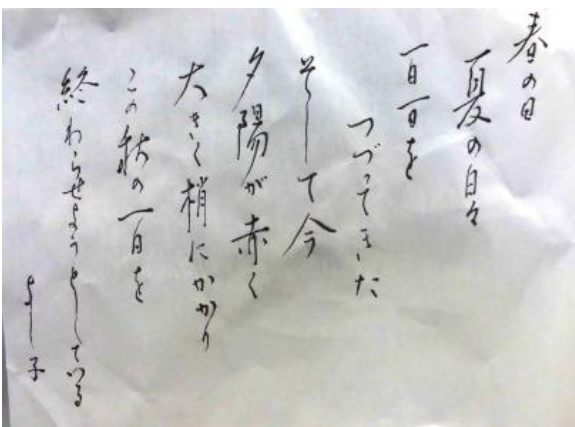 春の日
夏の日々
一日一日を
つづってきた
そして今
夕陽が赤く
大きく梢にかかり
この秋の一日を
終わらせようとしている
よし子